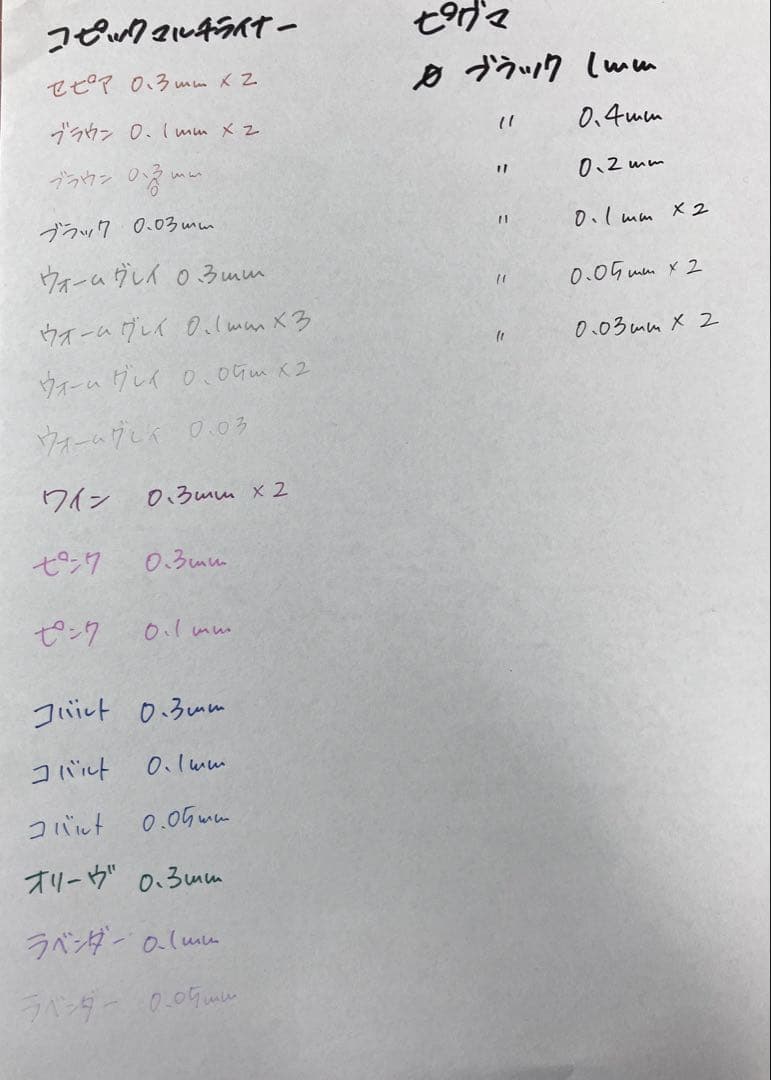 コピックマルチライナー
セピア 0.3mm × 2
ブラウン 0.1mm × 2
ブラウン 0.03mm
ブラック 0.03mm
ウォームグレイ 0.3mm
ウォームグレイ 0.1mm × 3
ウォームグレイ 0.05m × 2
ウォームグレイ 0.03
ワイン 0.3mm × 2
ピンク 0.3mm
ピンク 0.1mm
コバルト 0.3mm
コバルト 0.1mm
コバルト 0.05mm
オリーヴ 0.3mm
ラベンダー 0.1mm
ラベンダー 0.05mm
ピグマ
ブラック 1mm
〃 0.4mm
〃 0.2mm
〃 0.1mm × 2
〃 0.05mm × 2
〃 0.03mm × 2